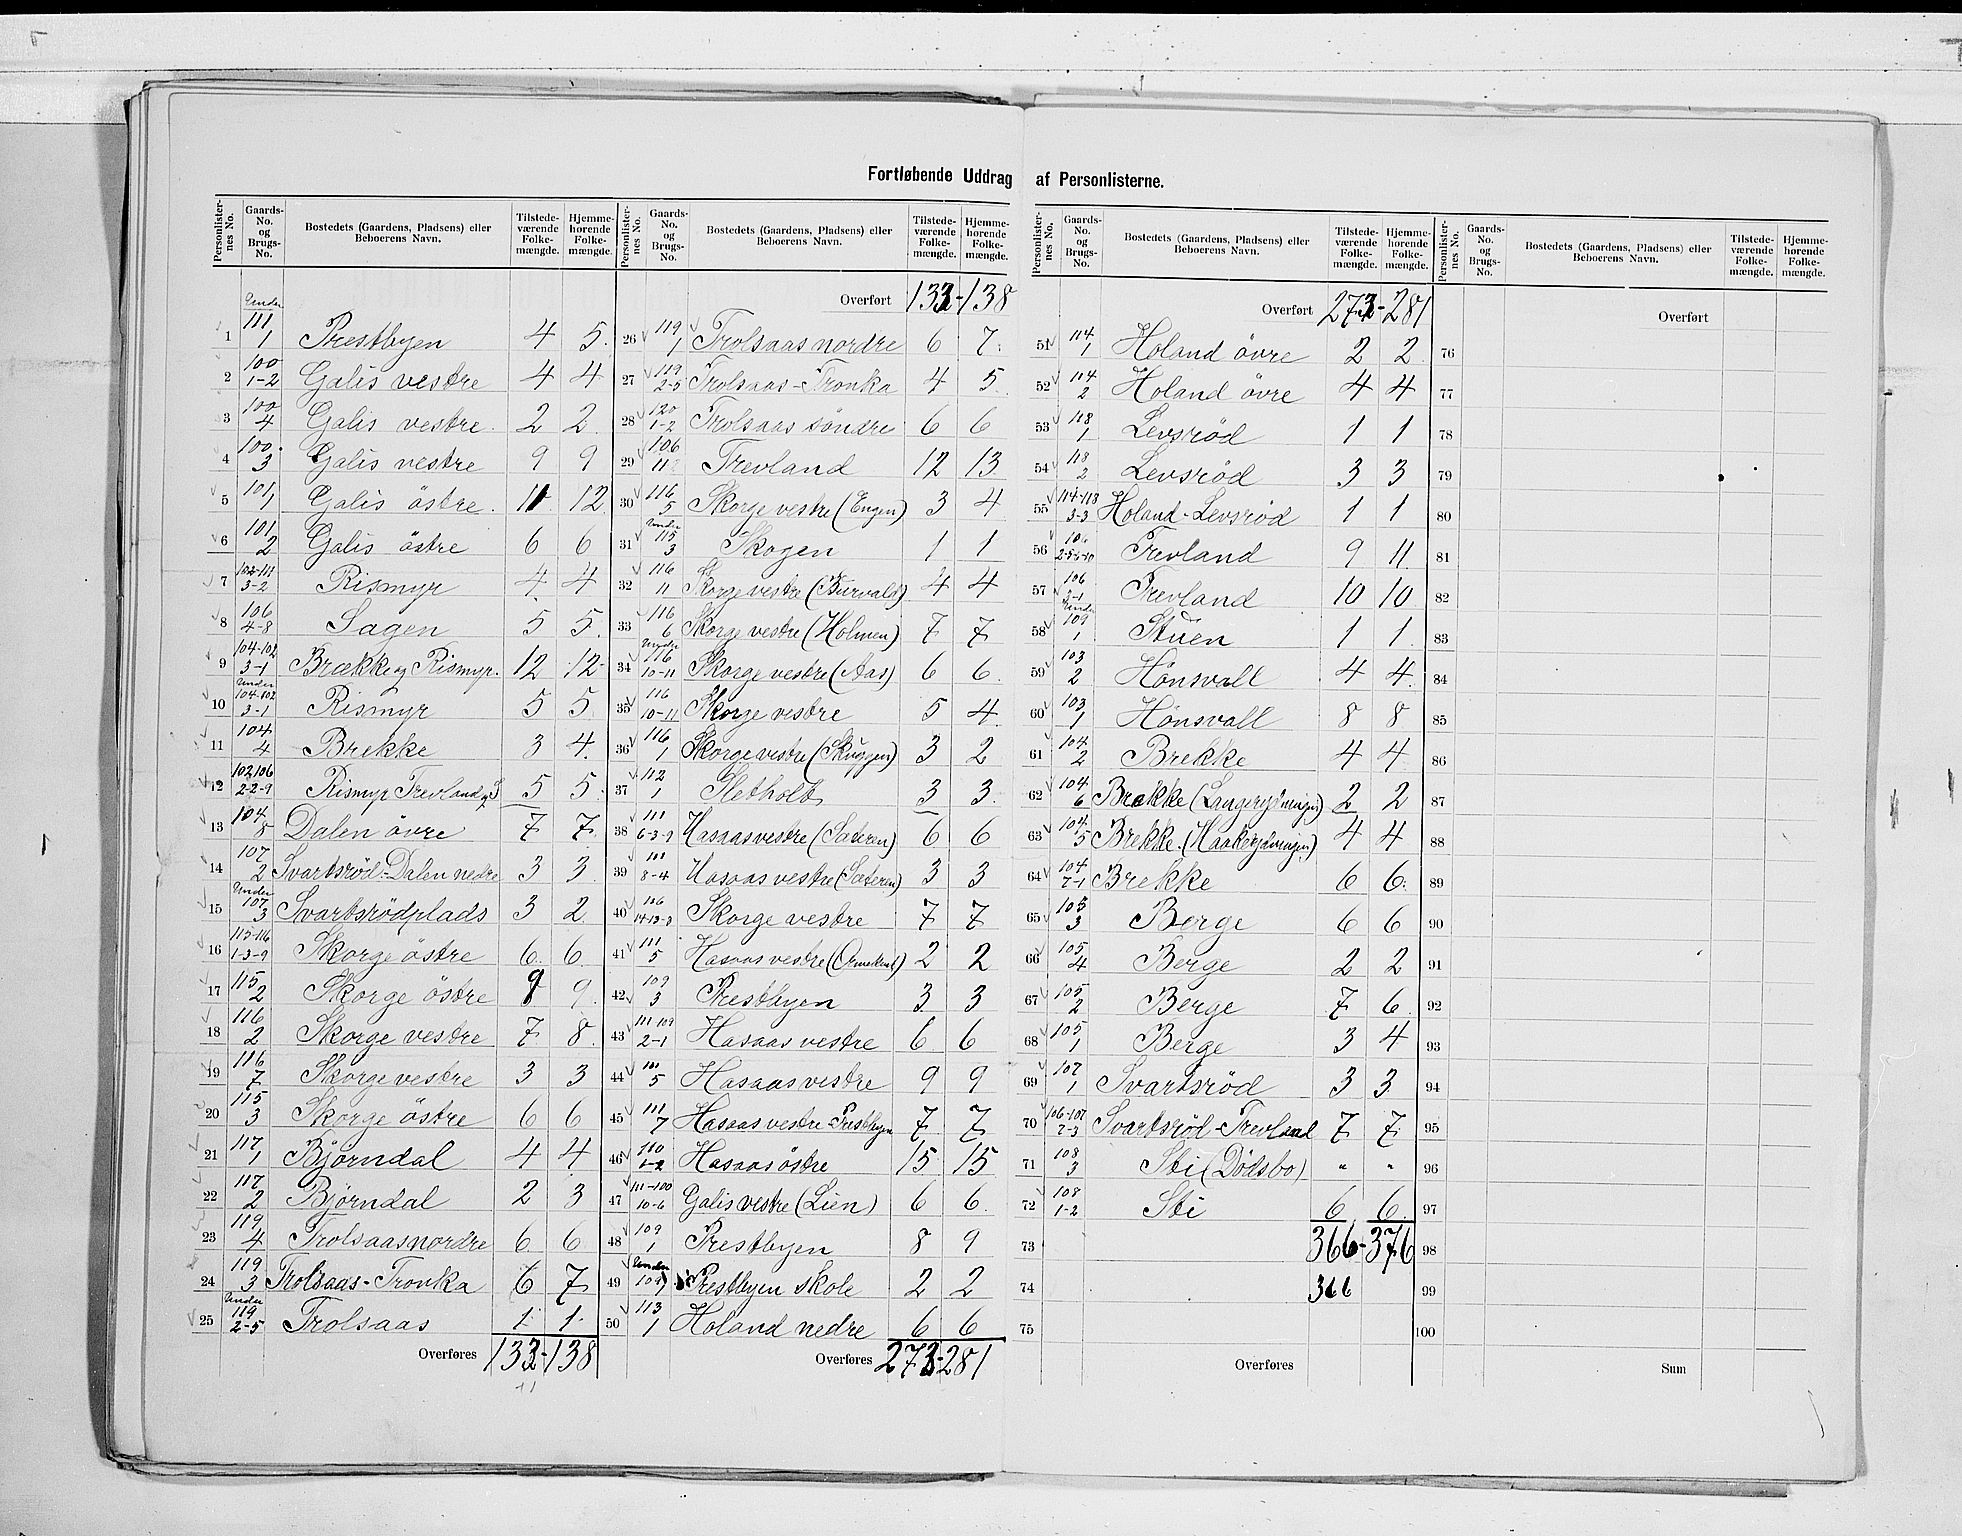 Fortløbende Uddrag af Personlisterne.
Personlister-nes No. Gaards-No. og Brugs-No. Bostedets (Gaardens, Pladsens) eller Beboerens Navn. Tilstede-værende Folke-mængde. Hjemme-hørende Folke-mængde.
1 Under 111 1 Prestbyen 4 5
2 100 1-2 Galis vestre 4 4
3 100 4 Galis vestre 2 2
4 100 3 Galis vestre 9 9
5 101 1 Galis östre 11 12
6 101 2 Galis östre 6 6
7 102-111 3-2 Rismyr 4 4
8 106 4-8 Sagen 5 5
9 104-102 3-1 Brække og Rismyr 12 12
10 Under 104-102 3-1 Rismyr 5 5
11 104 4 Brekke 3 4
12 102 106 2-2-9 Rismyr Trevland 5 5
13 104 8 Dalen övre 7 7
14 107 2 Svartsröd-Dalen nedre 3 3
15 Under 107 3 Svartsrödplads 3 2
16 115-116 1-3-9 Skorge östre 6 6
17 115 2 Skorge östre 9 9
18 116 2 Skorge vestre 7 8
19 116 7 Skorge vestre 3 3
20 115 3 Skorge östre 6 6
21 117 1 Björndal 4 4
22 117 2 Björndal 2 3
23 119 4 Trolsaas nordre 6 6
24 119 3 Trolsaas-Tronka 6 7
25 Under 119 2-5 Trolsaas 1 1
Overføres 133-138
Personlister-nes No. Gaards-No. og Brugs-No. Bostedets (Gaardens, Pladsens) eller Beboerens Navn. Tilstede-værende Folke-mængde. Hjemme-hørende Folke-mængde.
Overført 133-138
26 119 1 Trolsaas nordre 6 7
27 119 2-5 Trolsaas-Tronka 4 5
28 120 1-2 Trolsaas söndre 6 6
29 106 11 Trevland 12 13
30 116 5 Skorge vestre (Engen) 3 4
31 Under 115 3 Skogen 1 1
32 116 11 Skorge vestre (Burvald) 4 4
33 116 6 Skorge vestre (Holmen) 7 7
34 Under 116 10-11 Skorge vestre (Aas) 6 6
35 116 10-11 Skorge vestre 5 4
36 116 1 Skorge vestre (Skuggen) 3 2
37 112 1 Sletholt 3 3
38 111 6-3-9 Hasaas vestre (Sæteren) 6 6
39 111 8-4 Hasaas vestre (Sæteren) 3 3
40 116 14-13-8 Skorge vestre 7 7
41 111 5 Hasaas vestre 2 2
42 109 3 Prestbyen 3 3
43 111 109 2-1 Hasaas vestre 6 6
44 111 5 Hasaas vestre 9 9
45 111 7 Hasaas vestre-Prestbyen 7 7
46 110 1-2 Hasaas östre 15 15
47 111-100 10-6 Galis vestre (Lien) 6 6
48 109 1 Prestbyen 8 9
49 Under 109 Prestbyen skole 2 2
50 113 1 Holand nedre 6 6
Overføres 273-281
Personlister-nes No. Gaards-No. og Brugs-No. Bostedets (Gaardens, Pladsens) eller Beboerens Navn. Tilstede-værende Folke-mængde. Hjemme-hørende Folke-mængde.
Overført 273-281
51 114 1 Holand övre 2 2
52 114 2 Holand övre 4 4
53 118 1 Levsröd 1 1
54 118 2 Levsröd 3 3
55 114-118 3-3 Holand-Levsröd 1 1
56 Trevland 9 11
57 106 Trevland 10 10
58 Under 109 1 Stuen 1 1
59 103 2 Hönsvall 4 4
60 103 1 Hönsvall 8 8
61 104 2 Brekke 4 4
62 104 6 Brekke (Langerydningen) 2 2
63 104 5 Brekke (Haakerydningen) 4 4
64 104 7-1 Brekke 6 6
65 105 3 Berge 6 6
66 105 4 Berge 2 2
67 105 2 Berge 7 6
68 105 1 Berge 3 4
69 107 1 Svartsröd 3 3
70 106-107 7-3 Svartsröd-Trevland 7 7
71 108 3 Sti (Dödsbo) " "
72 108 1-2 Sti 6 6
73 366-376
74 366
75
Overføres
Personlister-nes No. Gaards-No. og Brugs-No. Bostedets (Gaardens, Pladsens) eller Beboerens Navn. Tilstede-værende Folke-mængde. Hjemme-hørende Folke-mængde.
Overført
76
77
78
79
80
81
82
83
84
85
86
87
88
89
90
91
92
93
94
95
96
97
98
99
100
Sum